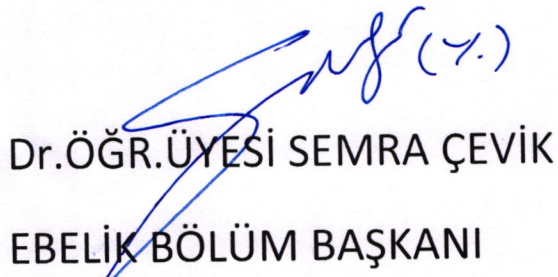 (Y.)
Dr.ÖĞR.ÜYESİ SEMRA ÇEVİK
EBELİK BÖLÜM BAŞKANI